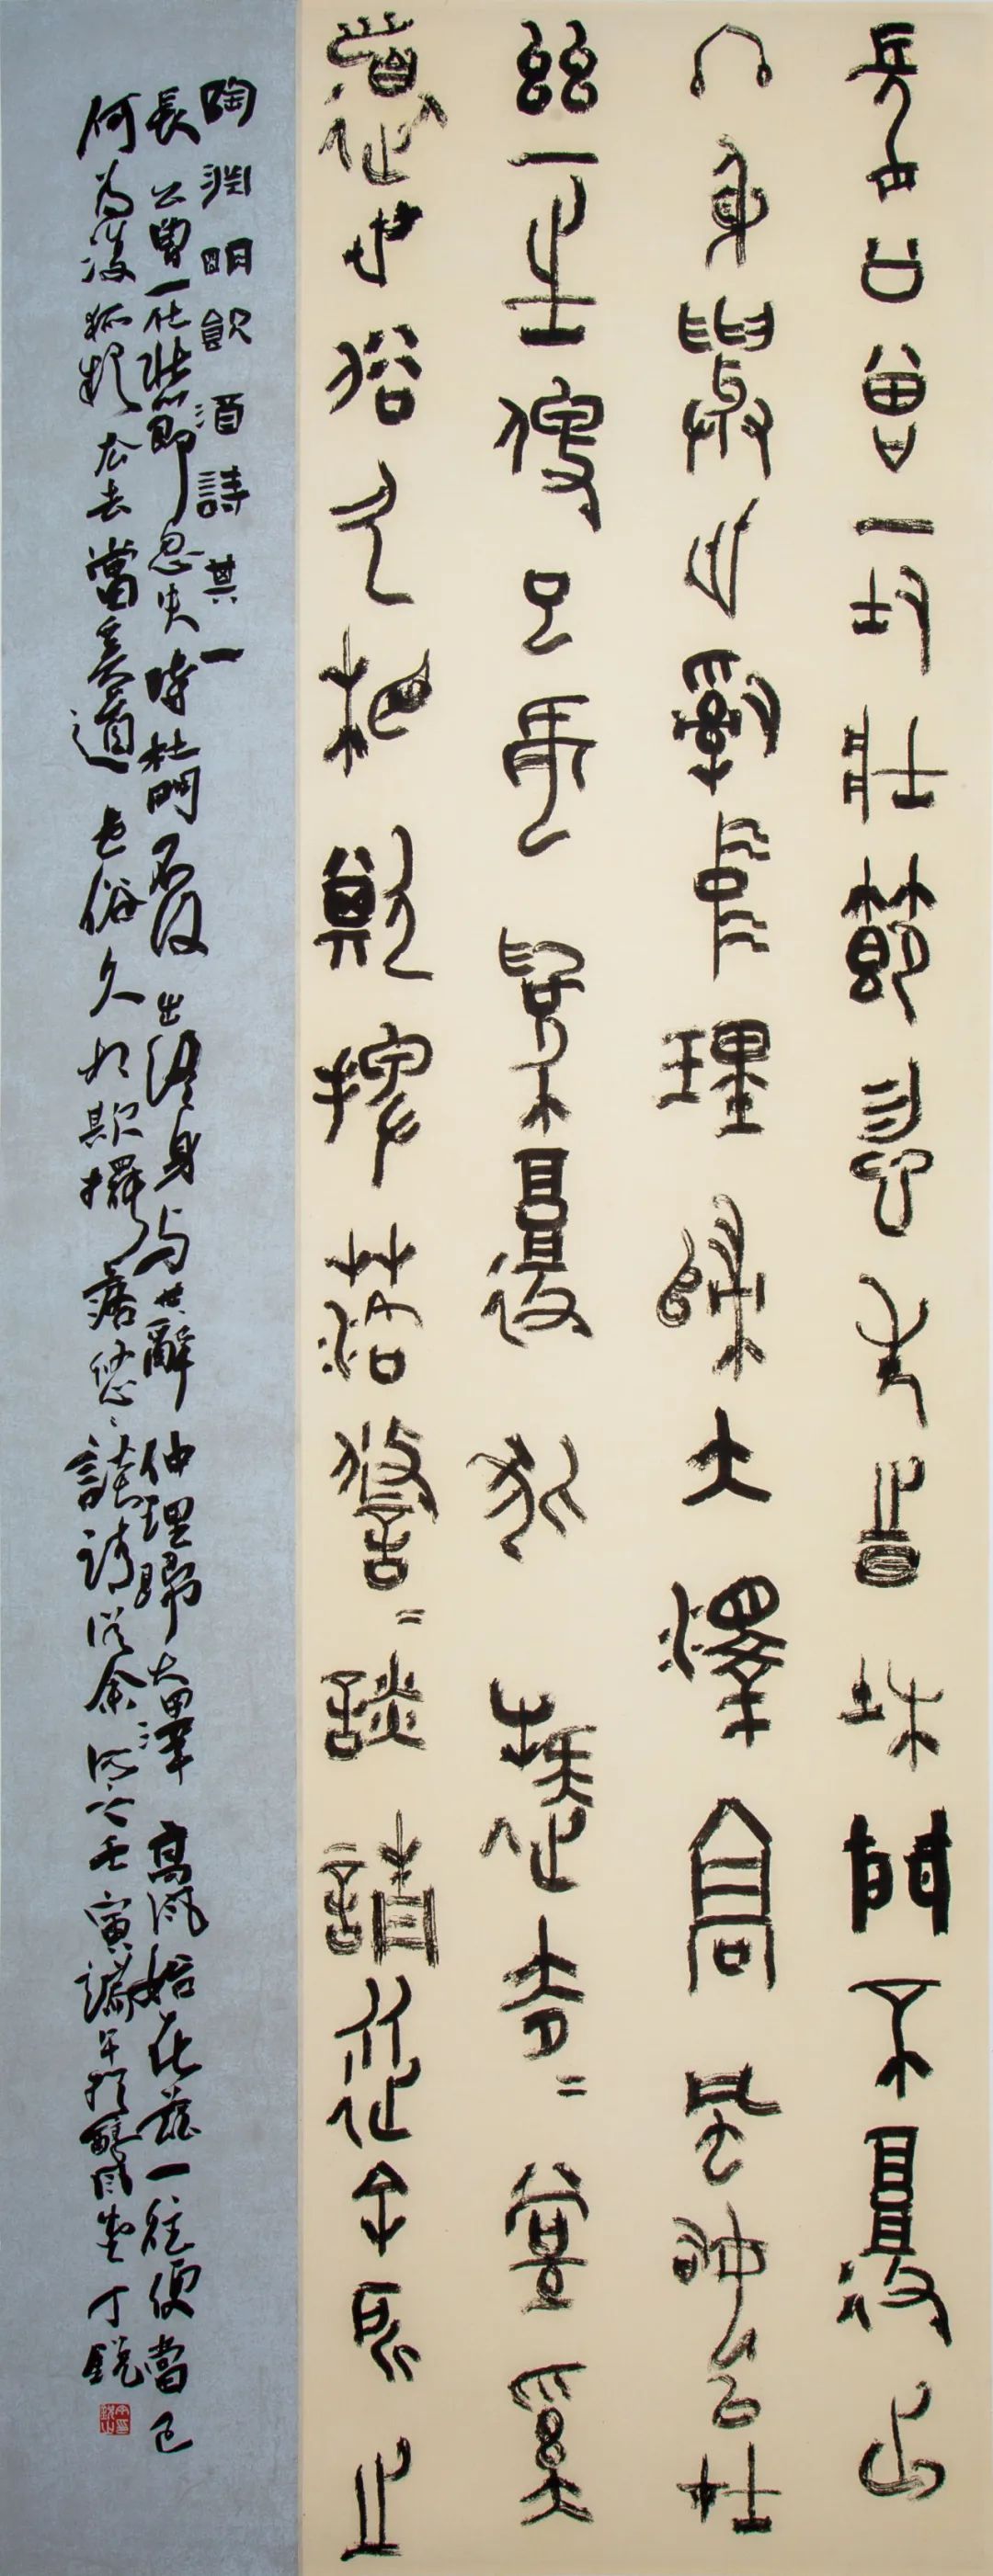 長公曾一仕壯節忽失時杜門不復出
終身與世辭仲理歸大澤高風始在
茲一往便當已何為復狐疑去=當奚
道世俗久相欺擺落悠=談請從余所之
陶淵明飲酒詩其一
長公曾一仕壯節忽失時杜門不復出終身与世辭仲理歸大澤高風始在茲一往便當已
何為復狐疑去去當奚道世俗久相欺擺落悠〻談請從余所之壬寅端午於醉風堂丁銳